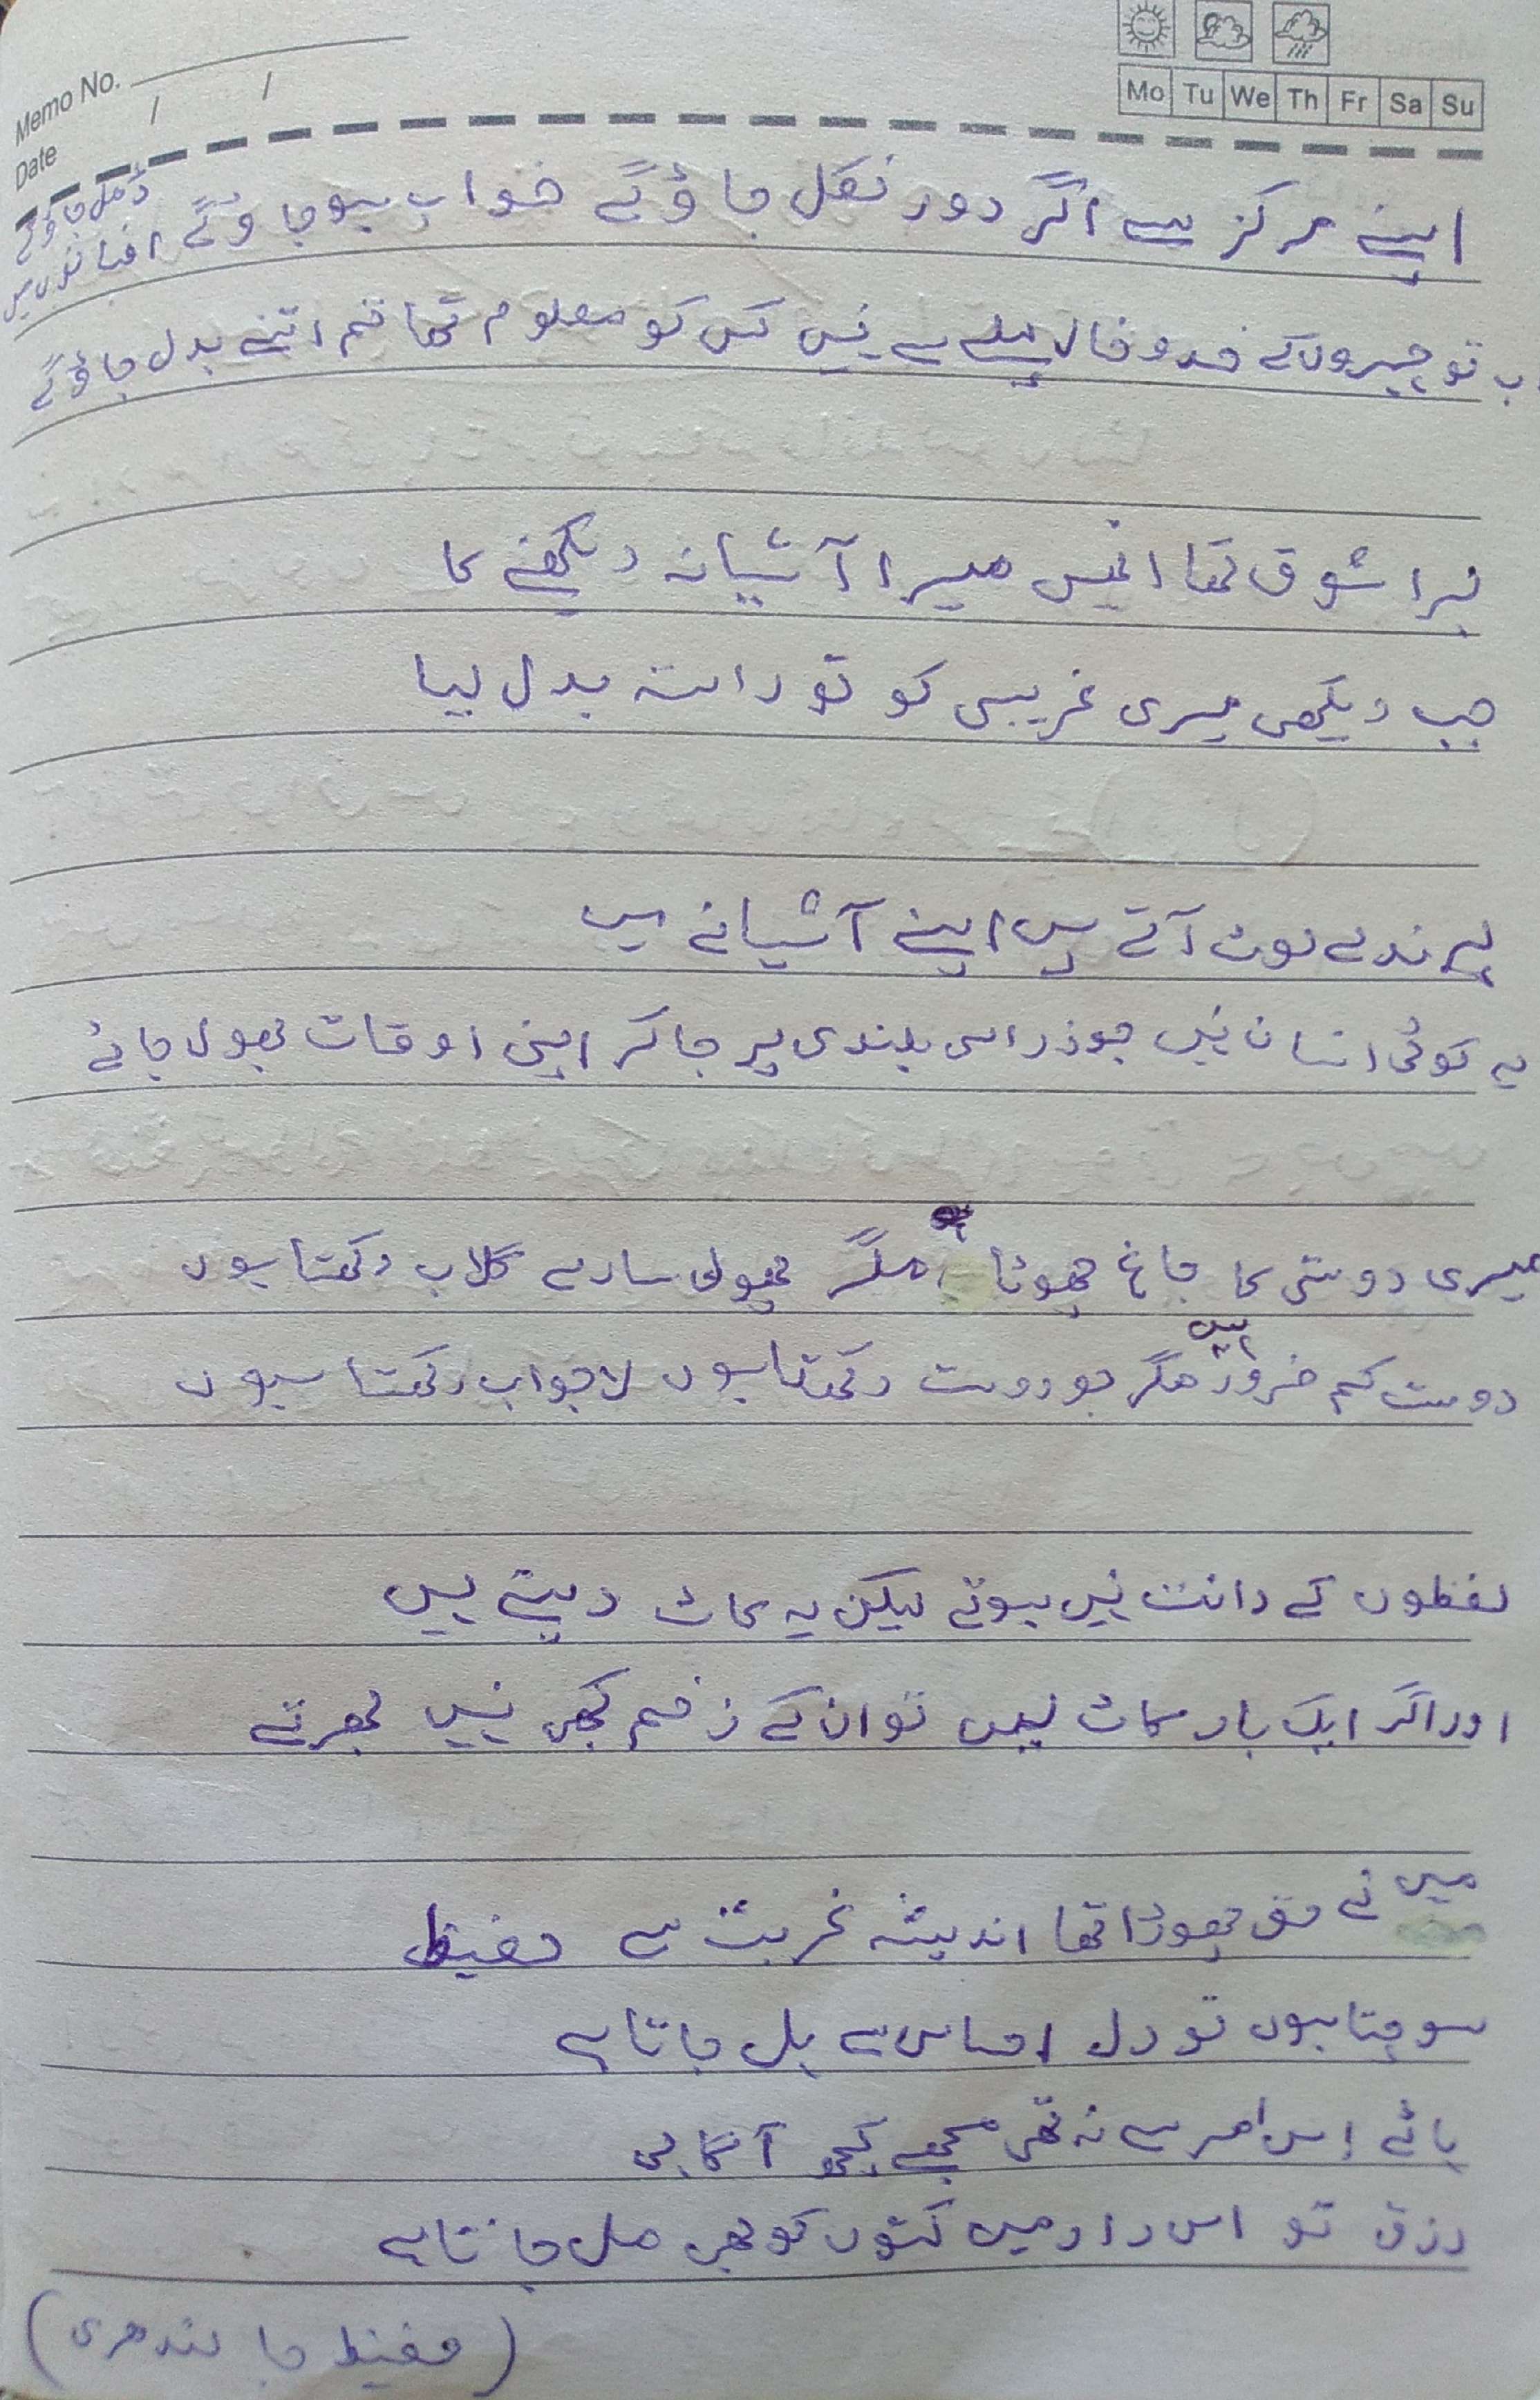 Memo No.
Date / /
Mo Tu We Th Fr Sa Su
اپنے مرکز سے اگر دور نکل جاؤ گے خواب ہو جاؤ گے افسانوں میں ڈھل جاؤ گے
اب تو چہروں کے خدوخال پہلے سے نہیں کس کو معلوم تھا تم اتنے بدل جاؤ گے
بڑا شوق تھا انہیں میرا آشیانہ دیکھنے کا
جب دیکھی میری غریبی کو تو راستہ بدل لیا
پرندے لوٹ آتے ہیں اپنے آشیانے میں
یہ کوئی انسان نہیں جو ذرا سی بلندی پر جا کر اپنی اوقات بھول جائے
میری دوستی کا باغ چھوٹا ہے مگر پھول سارے گلاب رکھتا ہوں
دوست کم ضرور ہیں مگر جو دوست رکھتا ہوں لاجواب رکھتا ہوں
لفظوں کے دانت نہیں ہوتے لیکن یہ کاٹ دیتے ہیں
اور اگر ایک بار کاٹ لیں تو ان کے زخم کبھی نہیں بھرتے
میں نے حق چھوڑا تھا اندیشہ غربت سے حفیظ
سوچتا ہوں تو دل احساس سے ہل جاتا ہے
ہائے اس امر سے نہ تھی مجھے کچھ آگاہی
رزق تو اس دار میں کتوں کو بھی مل جاتا ہے
(حفیظ جالندھری)